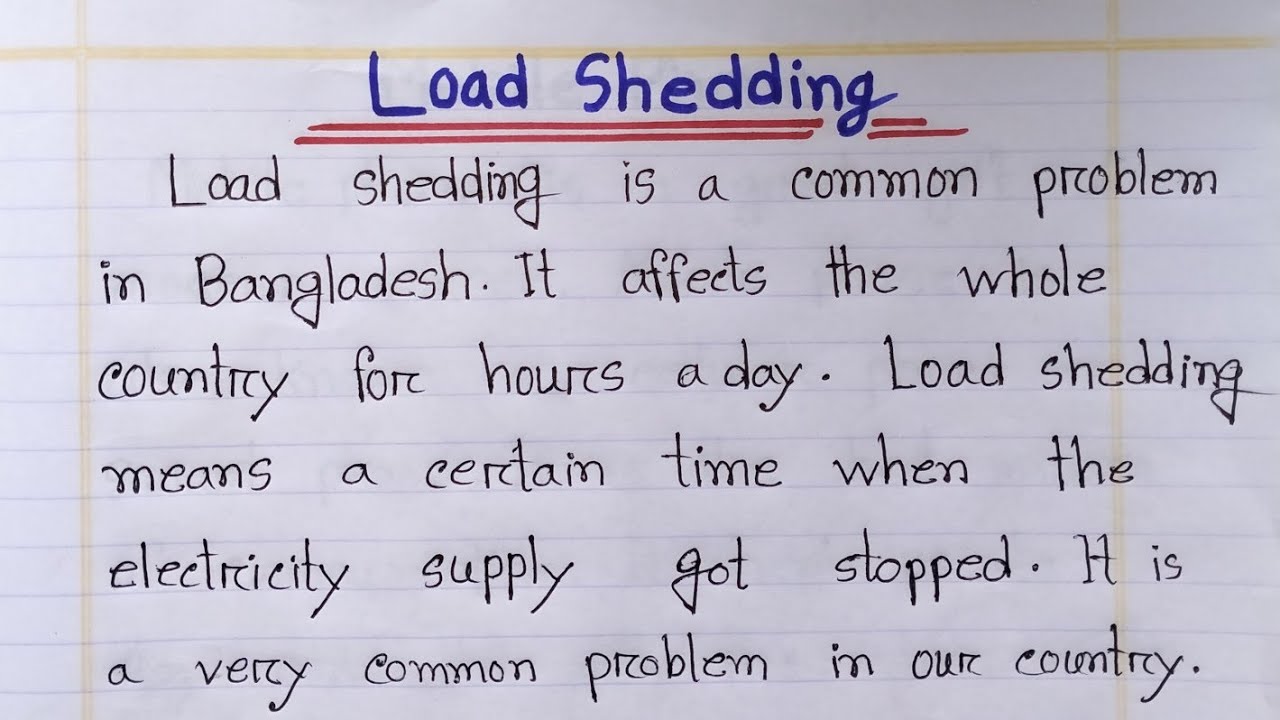 Load Shedding
Load shedding is a common problem
in Bangladesh. It affects the whole
country for hours a day. Load shedding
means a certain time when the
electricity supply got stopped. It is
a very common problem in our country.